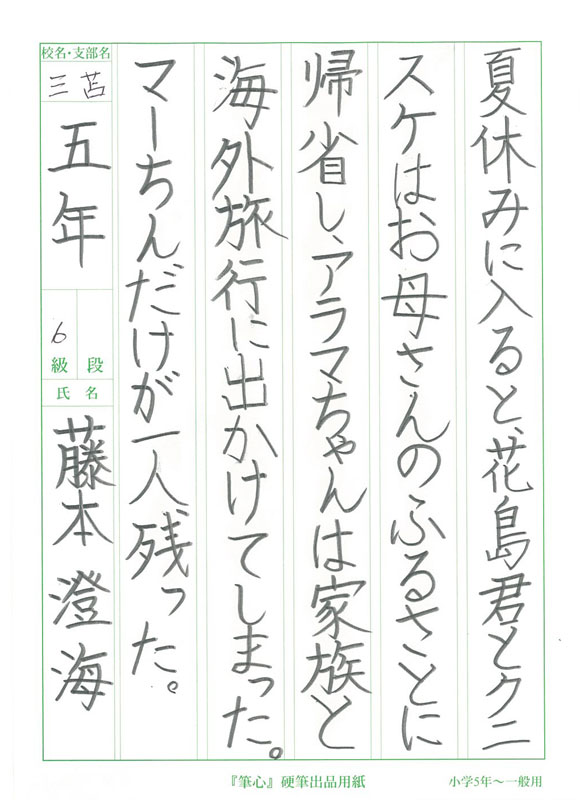 夏休みに入ると、花島君とクニ
スケはお母さんのふるさとに
帰省し、アラマちゃんは家族と
海外旅行に出かけてしまった。
マーちんだけが一人、残った。
校名・支部名
三苫
五年
6
級 段
氏 名
藤本澄海
『筆心』硬筆出品用紙 小学5年〜一般用